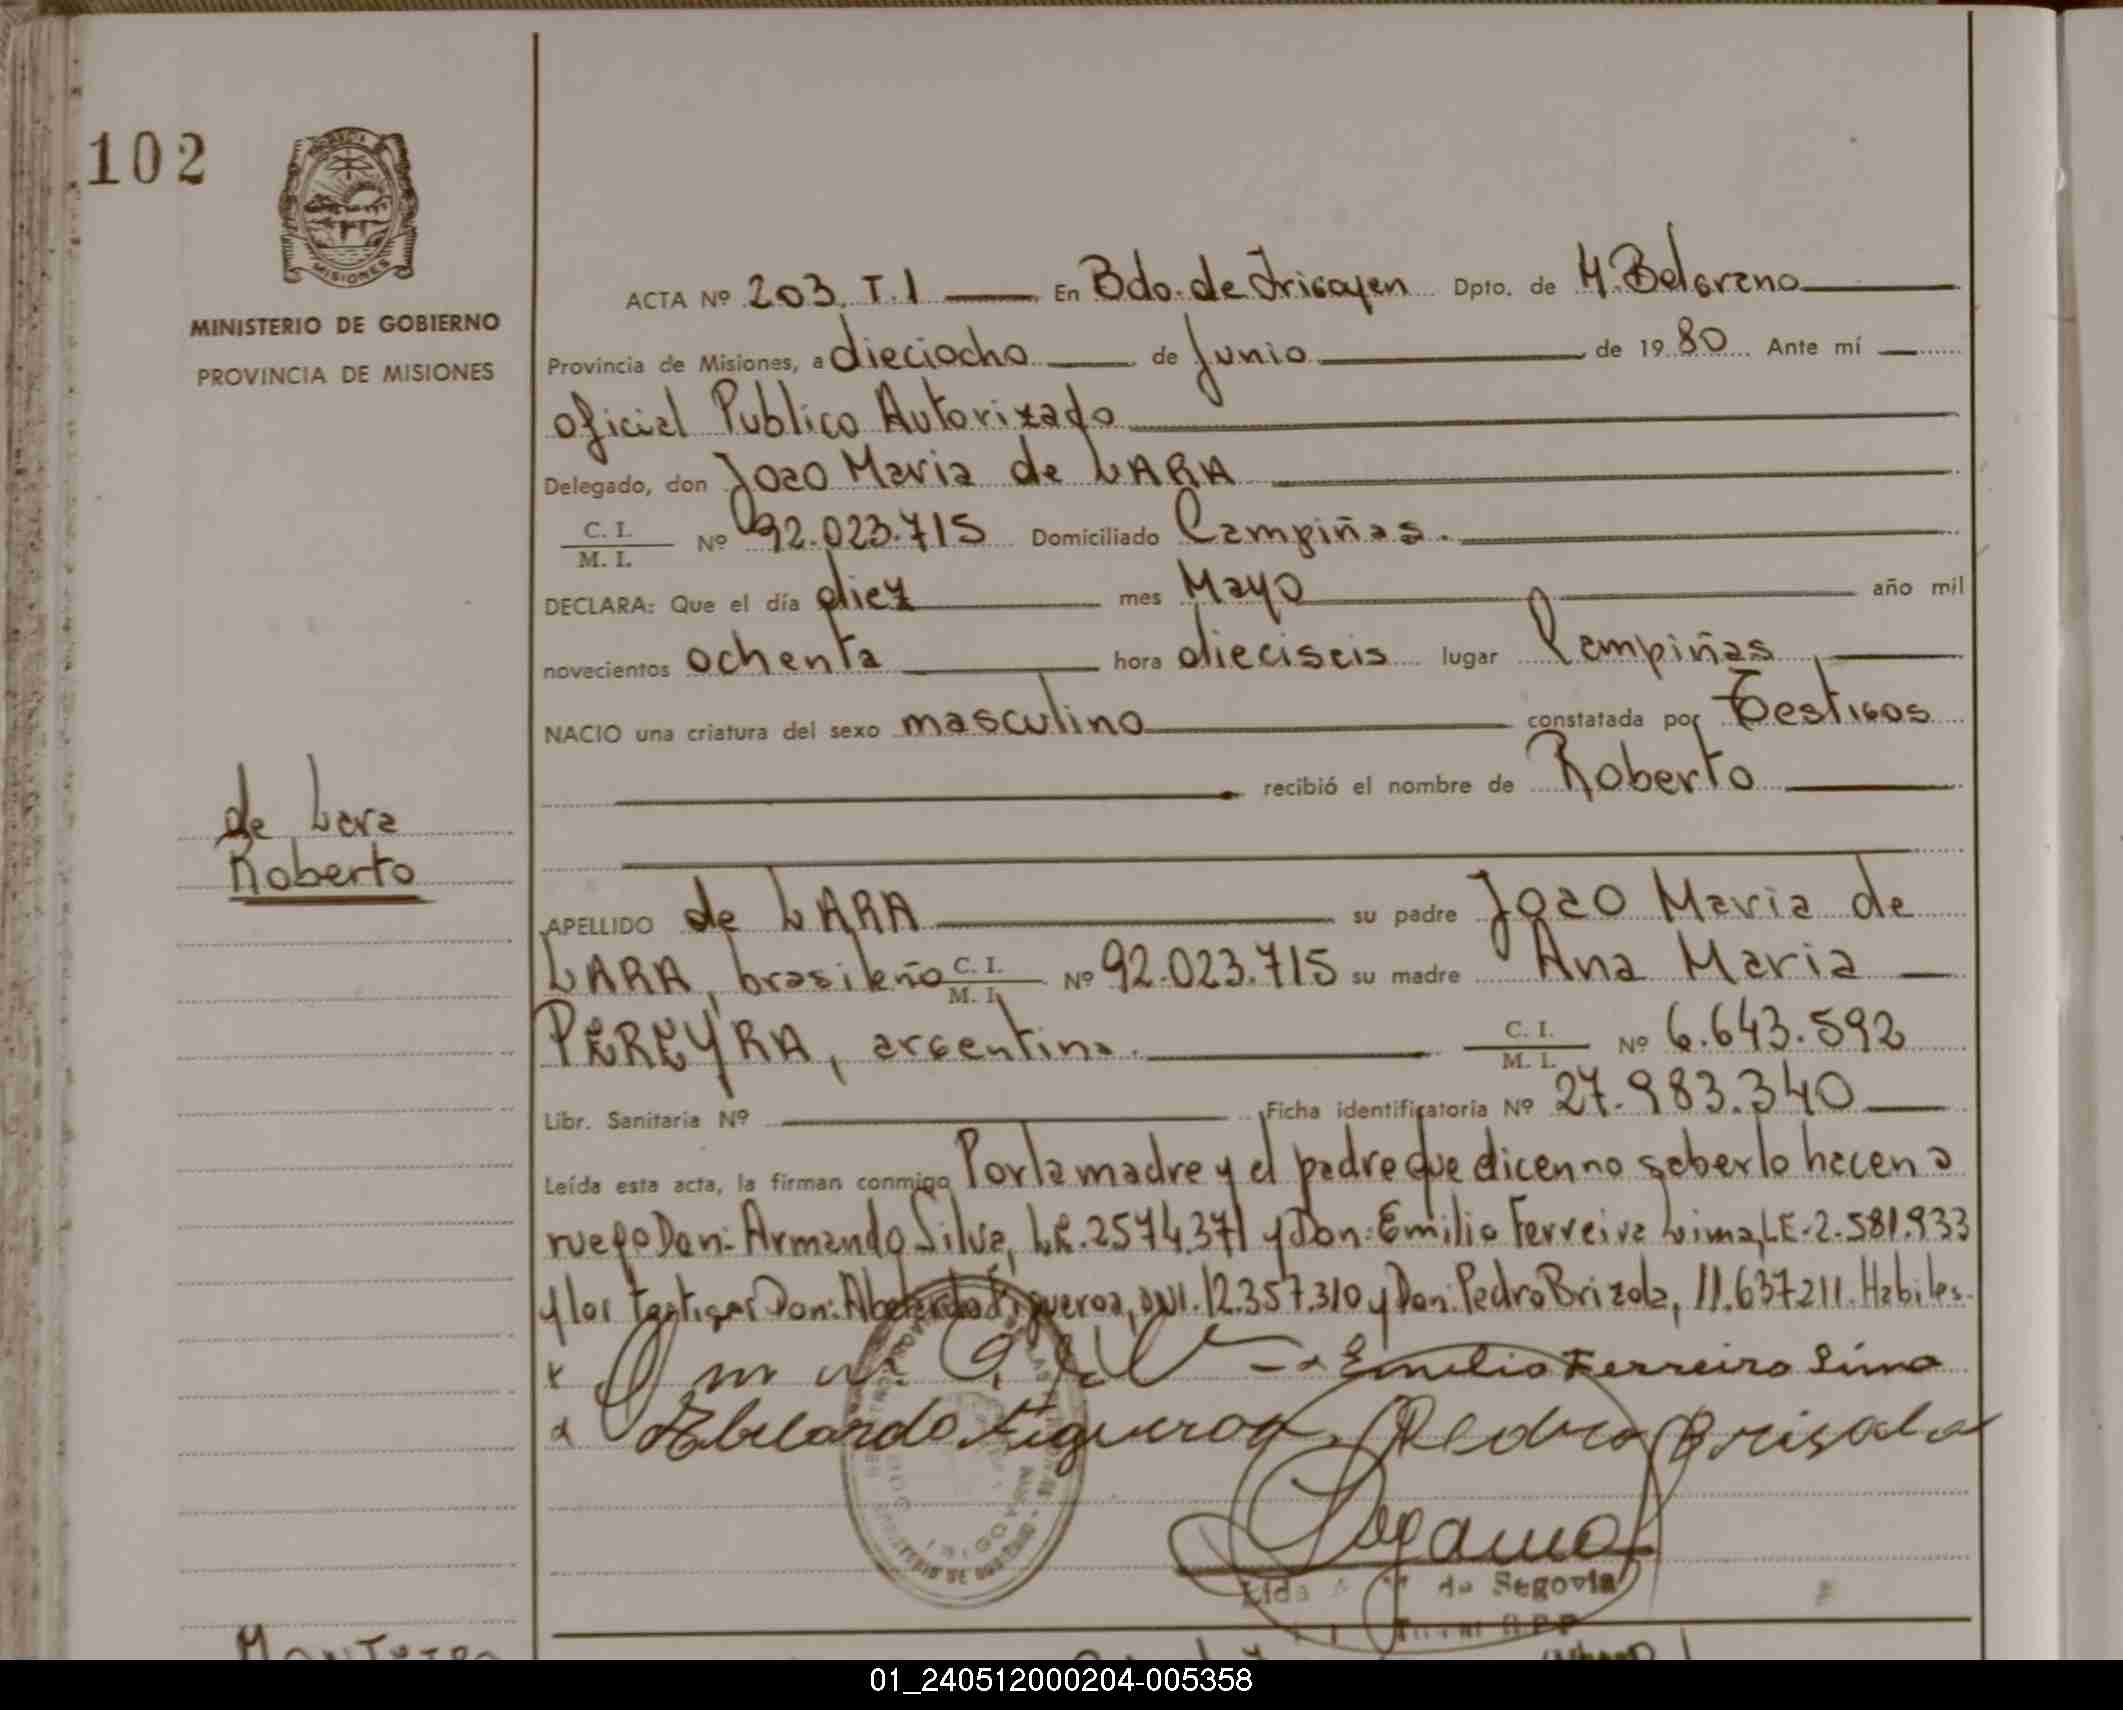 102
MISIONES
MINISTERIO DE GOBIERNO
PROVINCIA DE MISIONES
de Lara
Roberto
ACTA Nº 203. T.1 En Bdo. de Irigoyen Dpto. de M. Belgrano
Provincia de Misiones, a dieciocho de Junio de 1980 Ante mí
oficial Publico Autorizado
Delegado, don Joao Maria de LARA
C. I. / M. I. Nº 92.023.715 Domiciliado Campiñas.
DECLARA: Que el día diez mes Mayo año mil
novecientos ochenta hora dieciseis lugar Campiñas
NACIO una criatura del sexo masculino constatada por Testigos
recibió el nombre de Roberto
APELLIDO de LARA su padre Joao Maria de
LARA, brasileño C. I. / M. I. Nº 92.023.715 su madre Ana Maria
PEREYRA, argentina. C. I. / M. I. Nº 6.643.592
Libr. Sanitaria Nº Ficha identificatoria Nº 27.983.340
Leída esta acta, la firman conmigo Por la madre y el padre que dicen no saberlo hacen a
ruego Don: Armando Silva, LE. 2574.371 y Don: Emilio Ferreira Lima, LE-2.581.933
y los testigos Don: Abelardo Figueroa, DNI. 12.357.310 y Don: Pedro Brizola, 11.637.211. Habiles.
Emilio Ferreira Lima
Abelardo Figueroa Pedro Brisola
de Segovia
01_240512000204-005358